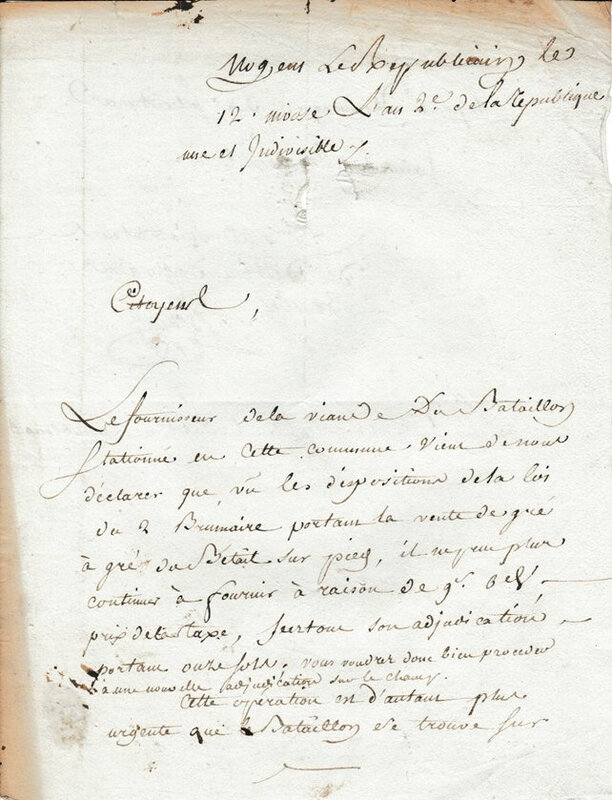 Nogent Le Republicain le
12. nivose L'an 2e. de la Republique
une et Indivisible /.
Citoyens,
Le fournisseur de la viande Du Bataillon
stationné en cette commune vient de nous
déclarer que, vu les dispositions de la loi
du 2 Brumaire portant la vente de gré
à gré du Betail sur pied, il ne peut plus
continuer à fournir à raison de 9s.
prix de la taxe, surtout son adjudication
portant onze sols. vous voudrez donc bien proceder
à une nouvelle adjudication sur le champ.
Cette operation est d'autant plus
urgente que le Bataillon se trouve sur